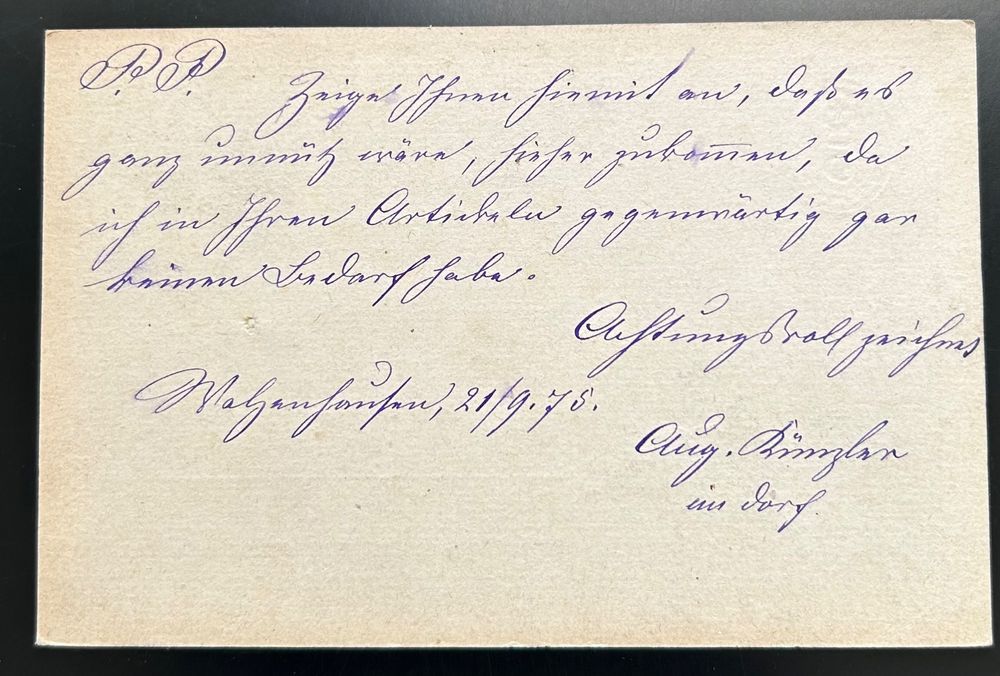 P. P.   Zeige Ihnen hiemit an, daß es
ganz unnütz wäre, hieher zukommen, da
ich in Ihren Artickeln gegenwärtig gar
keinen Bedarf habe.
Achtungsvoll zeichnet
Walzenhausen, 21/9.75.
Aug. Künzler
im Dorf.